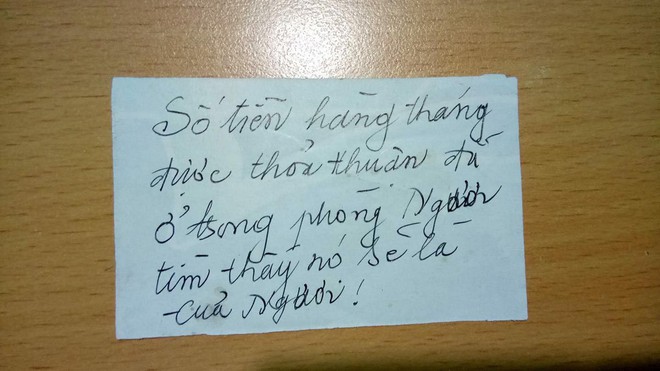 Số tiền hàng tháng
được thỏa thuận để
ở trong phòng Người
tìm thấy nó sẽ là
của Người!